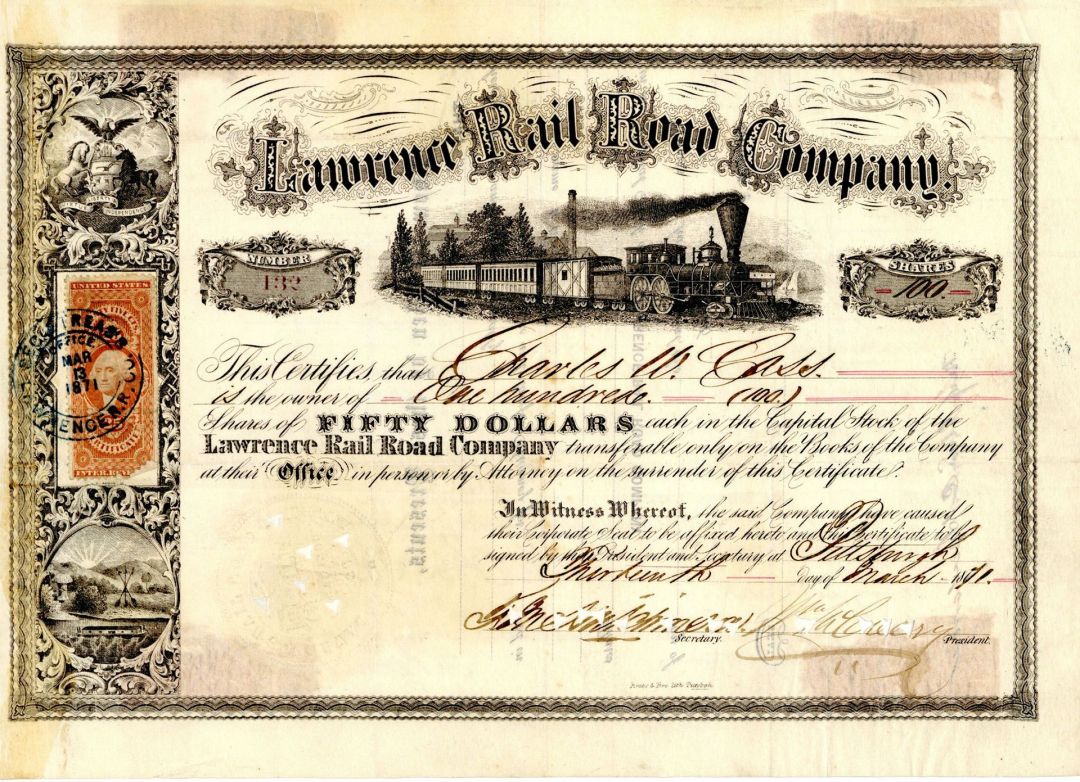 Lawrence Rail Road Company.
NUMBER
132
SHARES
100.
UNITED STATES
INTER. REV.
TREAS'S
OFFICE
MAR
13
1871
LAWRENCE R.R. CO
INDEPENDENCE
This Certifies that Charles W. Cass.
is the owner of One hundred. (100.)
Shares of FIFTY DOLLARS each in the Capital Stock of the
Lawrence Rail Road Company transferable only on the Books of the Company
at their Office in person or by Attorney on the surrender of this Certificate.
In Witness Whereof, the said Company have caused
their Corporate Seal to be affixed hereto and this Certificate to be
signed by their President and Secretary at Pittsburgh
Thirteenth day of March 1871.
Secretary.
President.
Lith. Pittsbgh